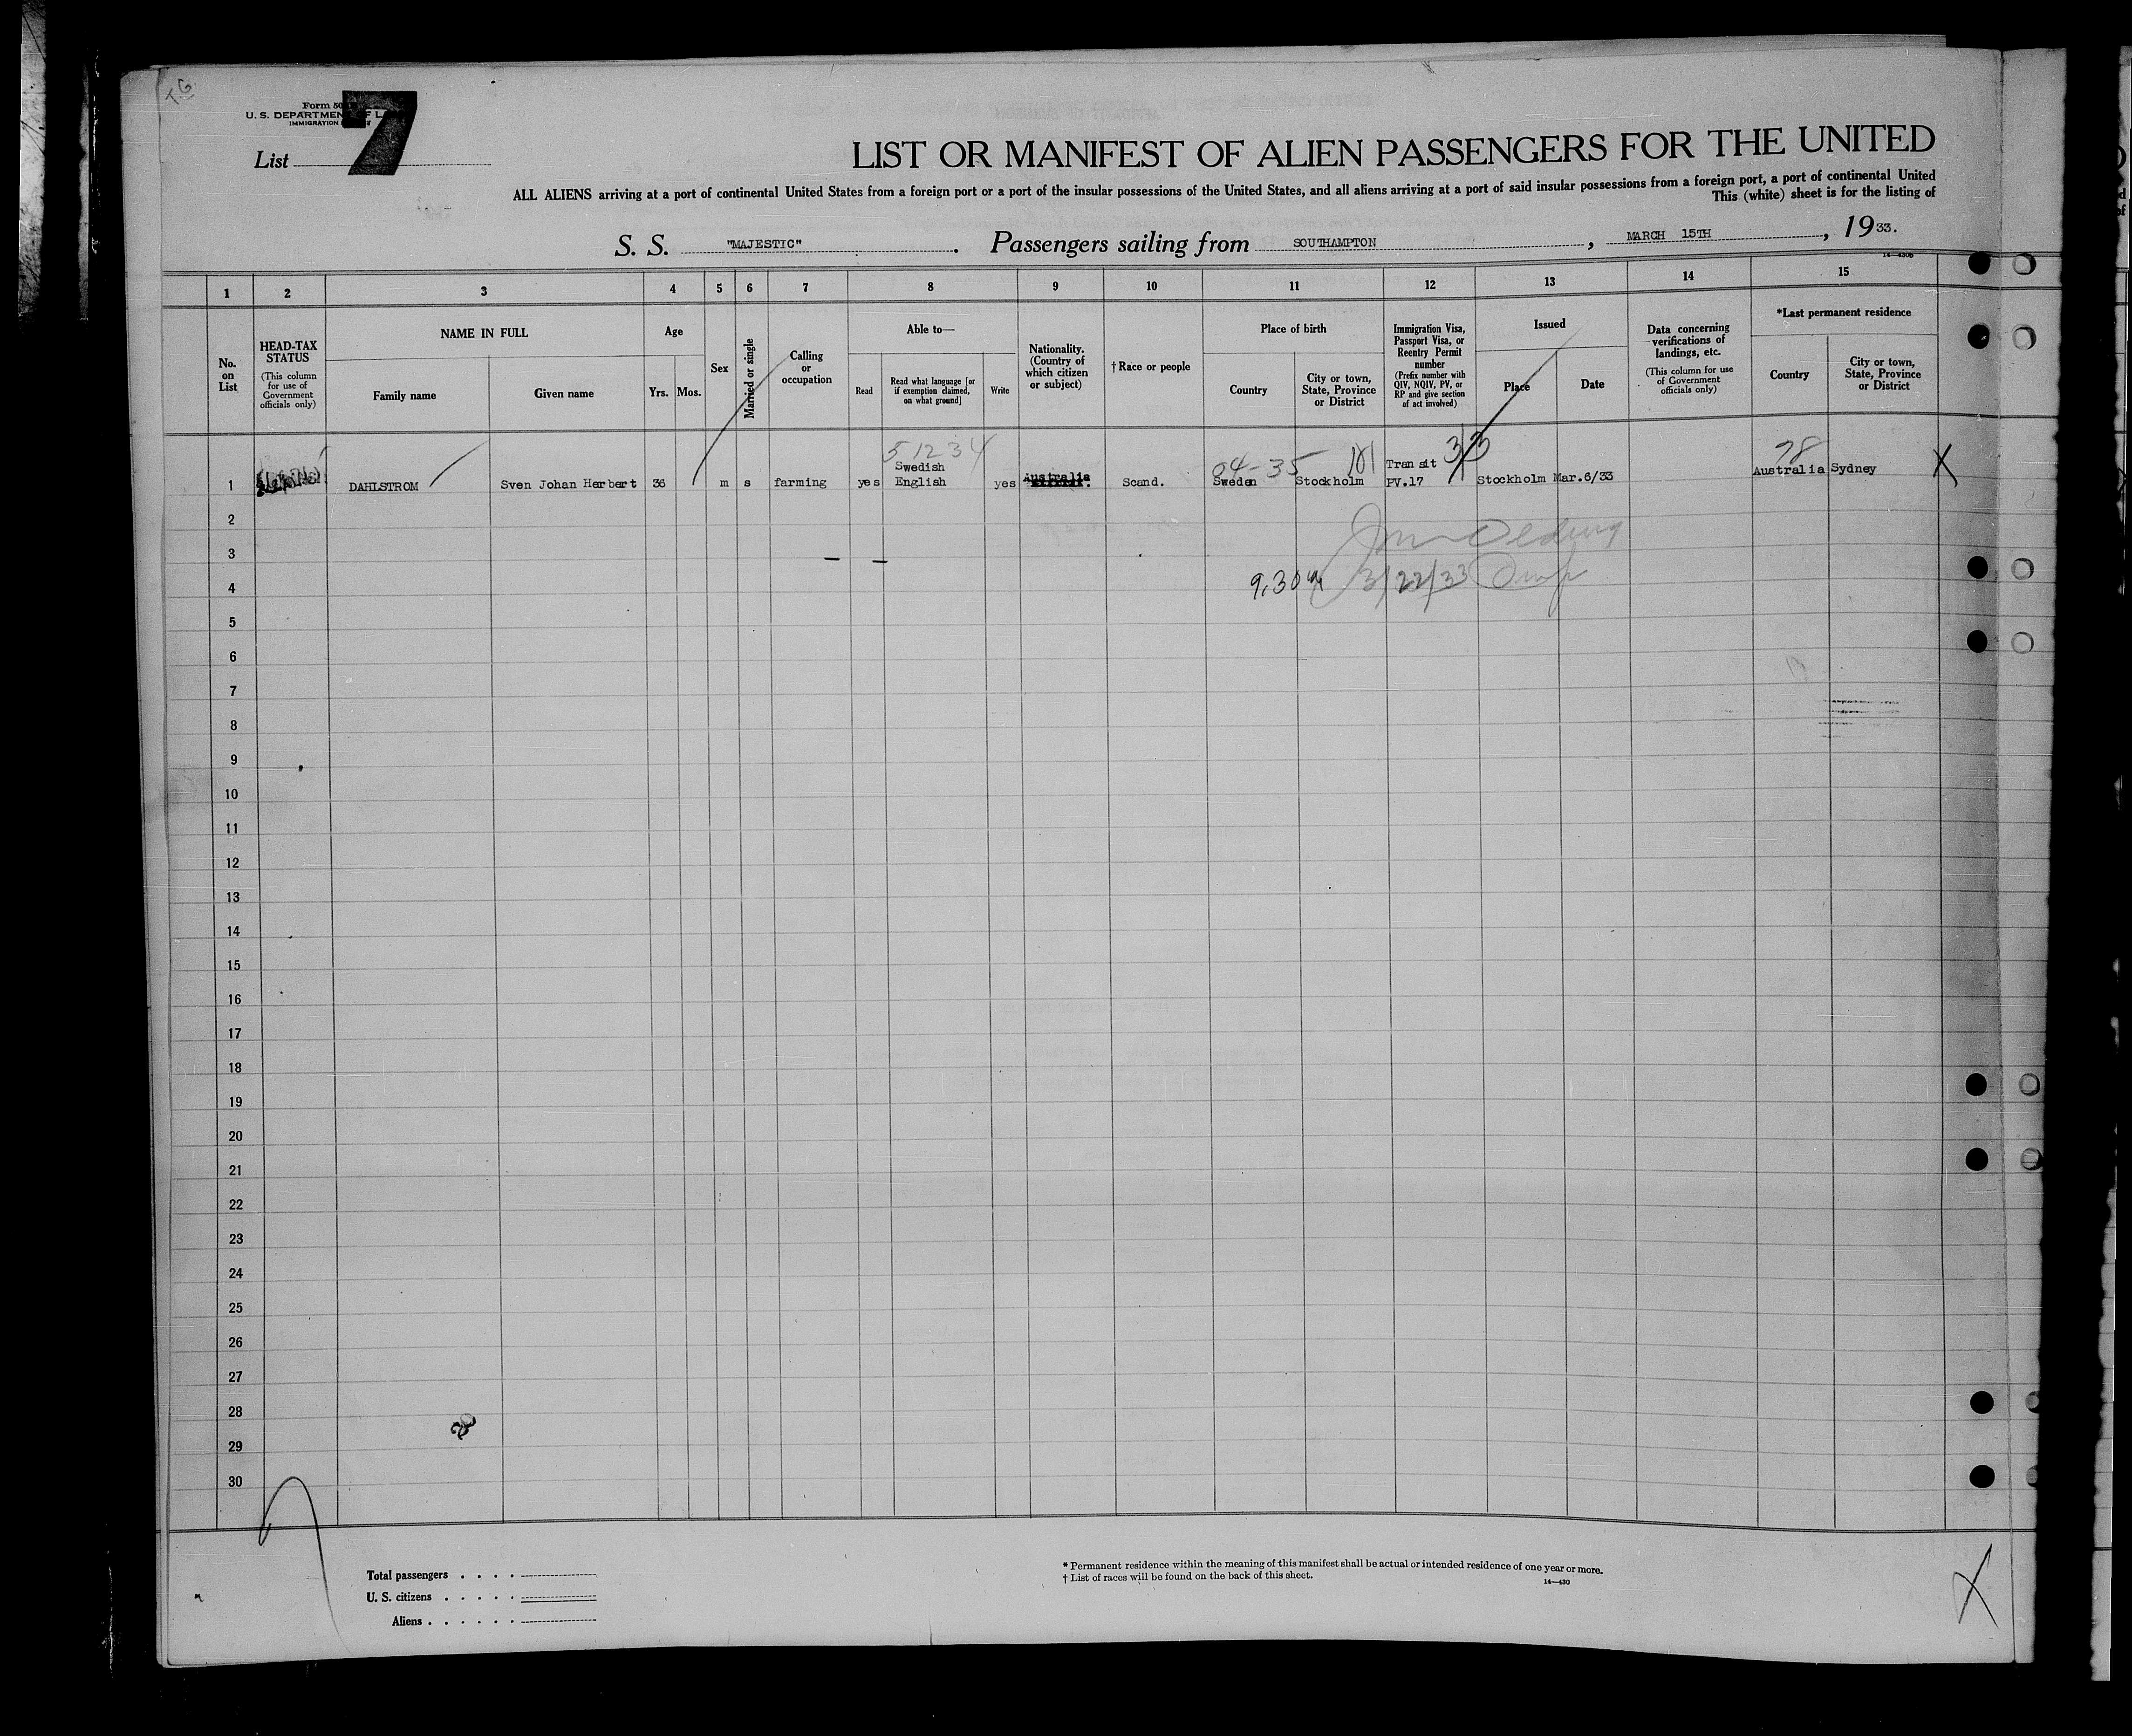 T.G.
Form 50
U. S. DEPARTMENT OF LA
IMMIGRATION
List 7
LIST OR MANIFEST OF ALIEN PASSENGERS FOR THE UNITED
ALL ALIENS arriving at a port of continental United States from a foreign port or a port of the insular possessions of the United States, and all aliens arriving at a port of said insular possessions from a foreign port, a port of continental United
This (white) sheet is for the listing of
S. S. "MAJESTIC". Passengers sailing from SOUTHAMPTON, MARCH 15TH, 1933.
1 2 3 4 5 6 7 8 9 10 11 12 13 14 15
No. on List
HEAD-TAX STATUS
(This column for use of Government officials only)
NAME IN FULL
Family name
Given name
Age
Yrs. Mos.
Sex
Married or single
Calling or occupation
Able to—
Read
Read what language [or if exemption claimed, on what ground]
Write
Nationality. (Country of which citizen or subject)
† Race or people
Place of birth
Country
City or town, State, Province or District
Immigration Visa, Passport Visa, or Reentry Permit number
(Prefix number with QIV, NQIV, PV, or RP and give section of act involved)
Issued
Place
Date
Data concerning verifications of landings, etc.
(This column for use of Government officials only)
*Last permanent residence
Country
City or town, State, Province or District
51234
04-35
3/3
78
1 DAHLSTROM Sven Johan Herbert 36 m s farming yes Swedish English yes Australia Scand. Sweden Stockholm Transit PV.17 Stockholm Mar.6/33 Australia Sydney X
2
3
9,30 3/22/33
4
5
6
7
8
9
10
11
12
13
14
15
16
17
18
19
20
21
22
23
24
25
26
27
28
29
30
Total passengers . . . .
U. S. citizens . . . . .
Aliens . . . . . .
* Permanent residence within the meaning of this manifest shall be actual or intended residence of one year or more.
† List of races will be found on the back of this sheet.
14—430
X